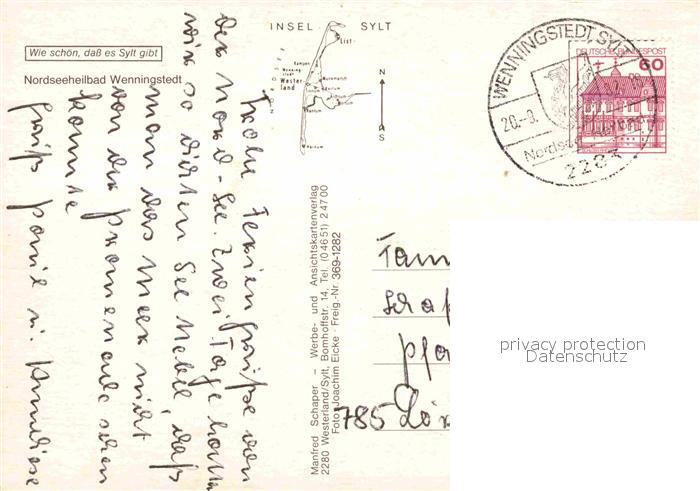 Wie schön, daß es Sylt gibt
Nordseeheilbad Wenningstedt
INSEL SYLT
List
Kampen
Wenningstedt
Westerland
N
S
WENNINGSTEDT, SYLT
20.-8.
Nordsee
228
DEUTSCHE BUNDESPOST
60
Frohe Feriengrüße von
der Nord-See. Zwei Tage hatten
wir so dichten See Nebel, daß
man das Meer nicht
von der Promenade sehen
konnte
Grüß
Manfred Schaper – Werbe- und Ansichtskartenverlag
2280 Westerland/Sylt, Bomhoffstr. 14, Tel. (04651) 24700
Foto: Joachim Eicke · Freig.-Nr. 369-1282
Fam
Schap
785 Lör
privacy protection
Datenschutz